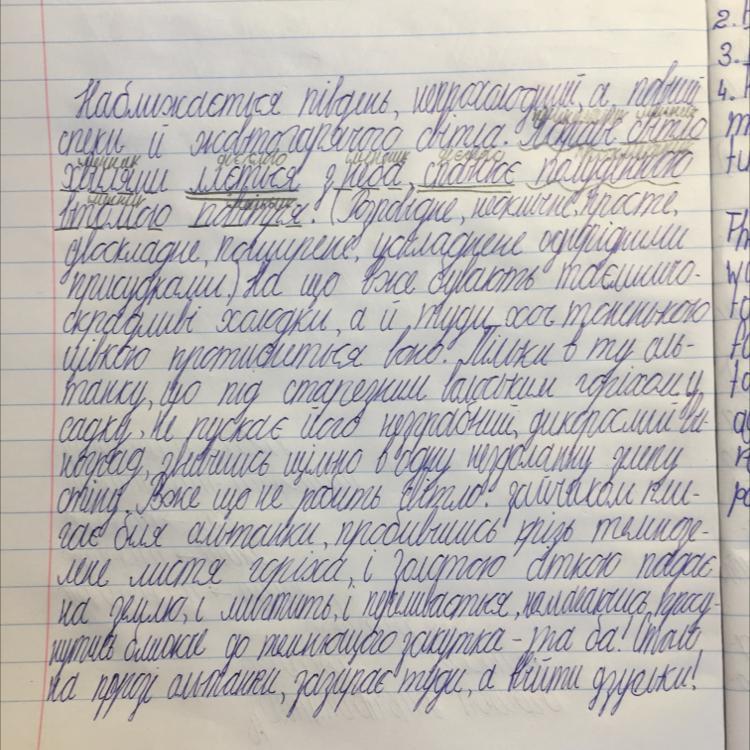 Наближається південь, непрохолодний, а повний
спеки й жовтогарячого світла. Воно світло
прикметник іменник
хвилями ллється з неба, сповнює полуденною
іменник дієслово іменник дієслово прикметник
втомою повітря. (Розповідне, неоклична, просте,
іменник іменник
двоскладне, поширене, ускладнене однорідними
присудками.) На що вже бувають таємничо-
скрадливі холодки, а й туди хоч тоненькою
цівкою протиснеться воно. Тільки в ту аль-
танку, що під старезним волоським горіхом у
садку, не пускає його нездрабний, дикорослий ви-
ноград, звившись щільно в одну нездоланну зелену
стіну. Вже що не робить світло: зайчиком пли-
гає біля альтанки, пробившись крізь темнозе-
лене листя горіха, і золотою сіткою падає
на землю, і миготить, і переливається, намагаючись, прос-
нутись ближче до темнющого закутка – та ба! Стало
на порозі альтанки, зазирає туди, а ввійти дзуськи!
2.
3.
4.